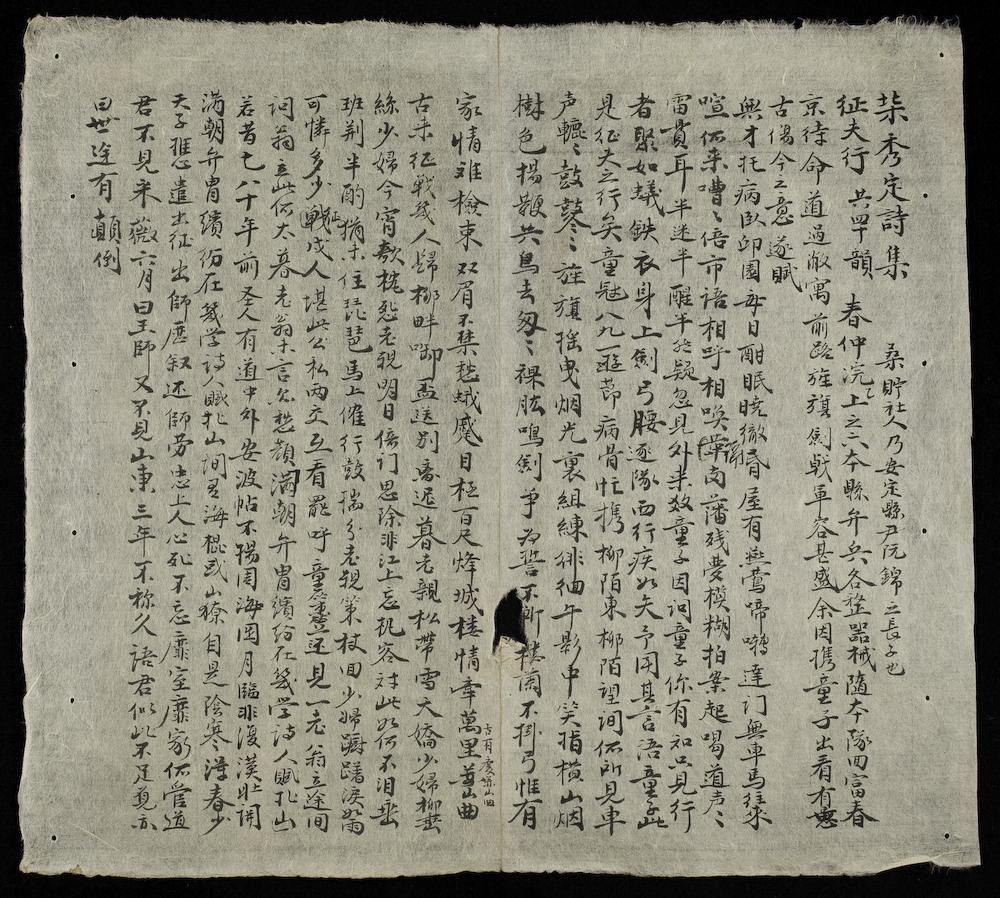 棐秀定詩集 桑貯社人乃安定縣尹阮錦之長子也
征夫行 共四十韻 春仲浣上之六本縣弁兵各整器械隨本隊回富春
京待命道過敝寓前路旌旗劍戟軍容甚盛余因携童子出看有感
古傷今之意遂賦
無才托病臥邱園每日酣眠曉徹昏屋有燕鶯啼囀達門無車馬往來
喧何來嘈々倍市語相呼相喚葉南藩殘夢模糊拍案起喝道声々
雷貫耳半迷半醒半疑忽見外來数童子因问童子你有知只見行
者聚如蟻鉄衣身上劍弓腰逐隊而行疾如矢予因其言語童子此
是征夫之行矣童冠八九一遊節病骨忙携柳陌東柳陌望间何所見車
声轆々鼓鼕々旌旗摇曳烟光裏組練徘徊午影中笑指横山烟
樹色揚鞭共鳥去匆々裸肱鳴劍爭為誓不斬樓蘭不掛弓惟有
家情难檢束双眉不禁愁蛾蹙目極百尺烽城楼情牽萬里 曲
古来征戰幾人歸柳畔啣盃送别 遲暮老親松帶雪夭嬌少婦柳垂
絲少婦今宵欹枕愁老親明日倚门思除非江上忘机客对此如何不泪垂
班荆半酌猶未住琵琶馬上催行鼓揣分老親策杖回少婦躕躇淚如雨
可憐多少戰戍人堪此公私兩交互看罷呼童 還見一老翁立途间
问翁立此何太暮老翁未言久愁顔满朝弁冑繽纷在幾学诗人賦北山
若昔七八十年前圣人有道中外安波帖不揚周海國月臨非復漢壮関
满朝弁冑繽纷在幾学诗人賦北山间有海棍或山獠自是陰寒 春少
天子應遣出征出師 叙还師劳忠上人心死不忘靡室靡家何管道
君不見采薇六月曰王師又不見山東三年不称久語君似此不足覓亦
曰世途有顛倒